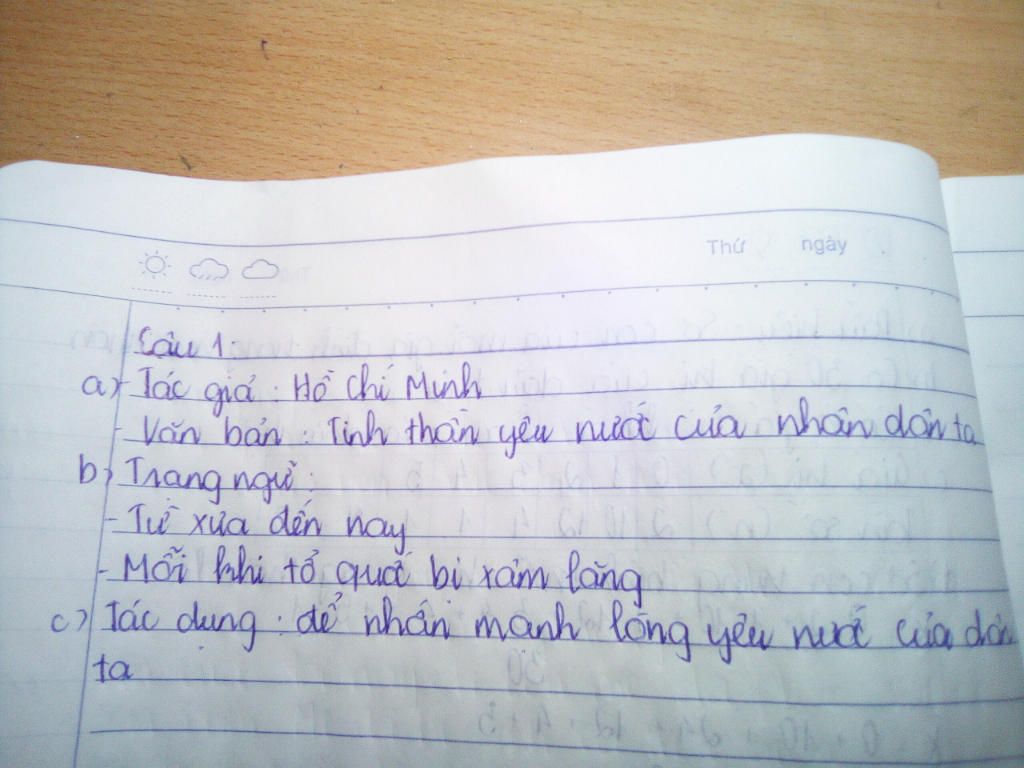 Thứ ngày
Câu 1
a) - Tác giả : Hồ Chí Minh
- Văn bản : Tinh thần yêu nước của nhân dân ta
b) Trạng ngữ :
- Từ xưa đến nay
- Mỗi khi tổ quốc bị xâm lăng
c) Tác dụng : để nhấn mạnh lòng yêu nước của dân
ta